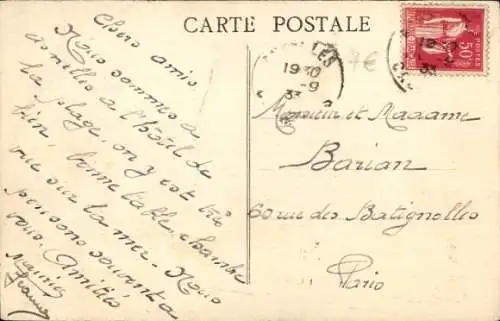 CARTE POSTALE
Chers amis
Nous sommes à
à l'Hôtel de
la plage, on y est très
bien, bonne table, chambre
vue sur la mer. Nous
pensons souvent à
vous. Amitiés
19 30
-9
33
7€
50c
POSTES
Monsieur et Madame
Barian
60 rue des Batignolles
Paris